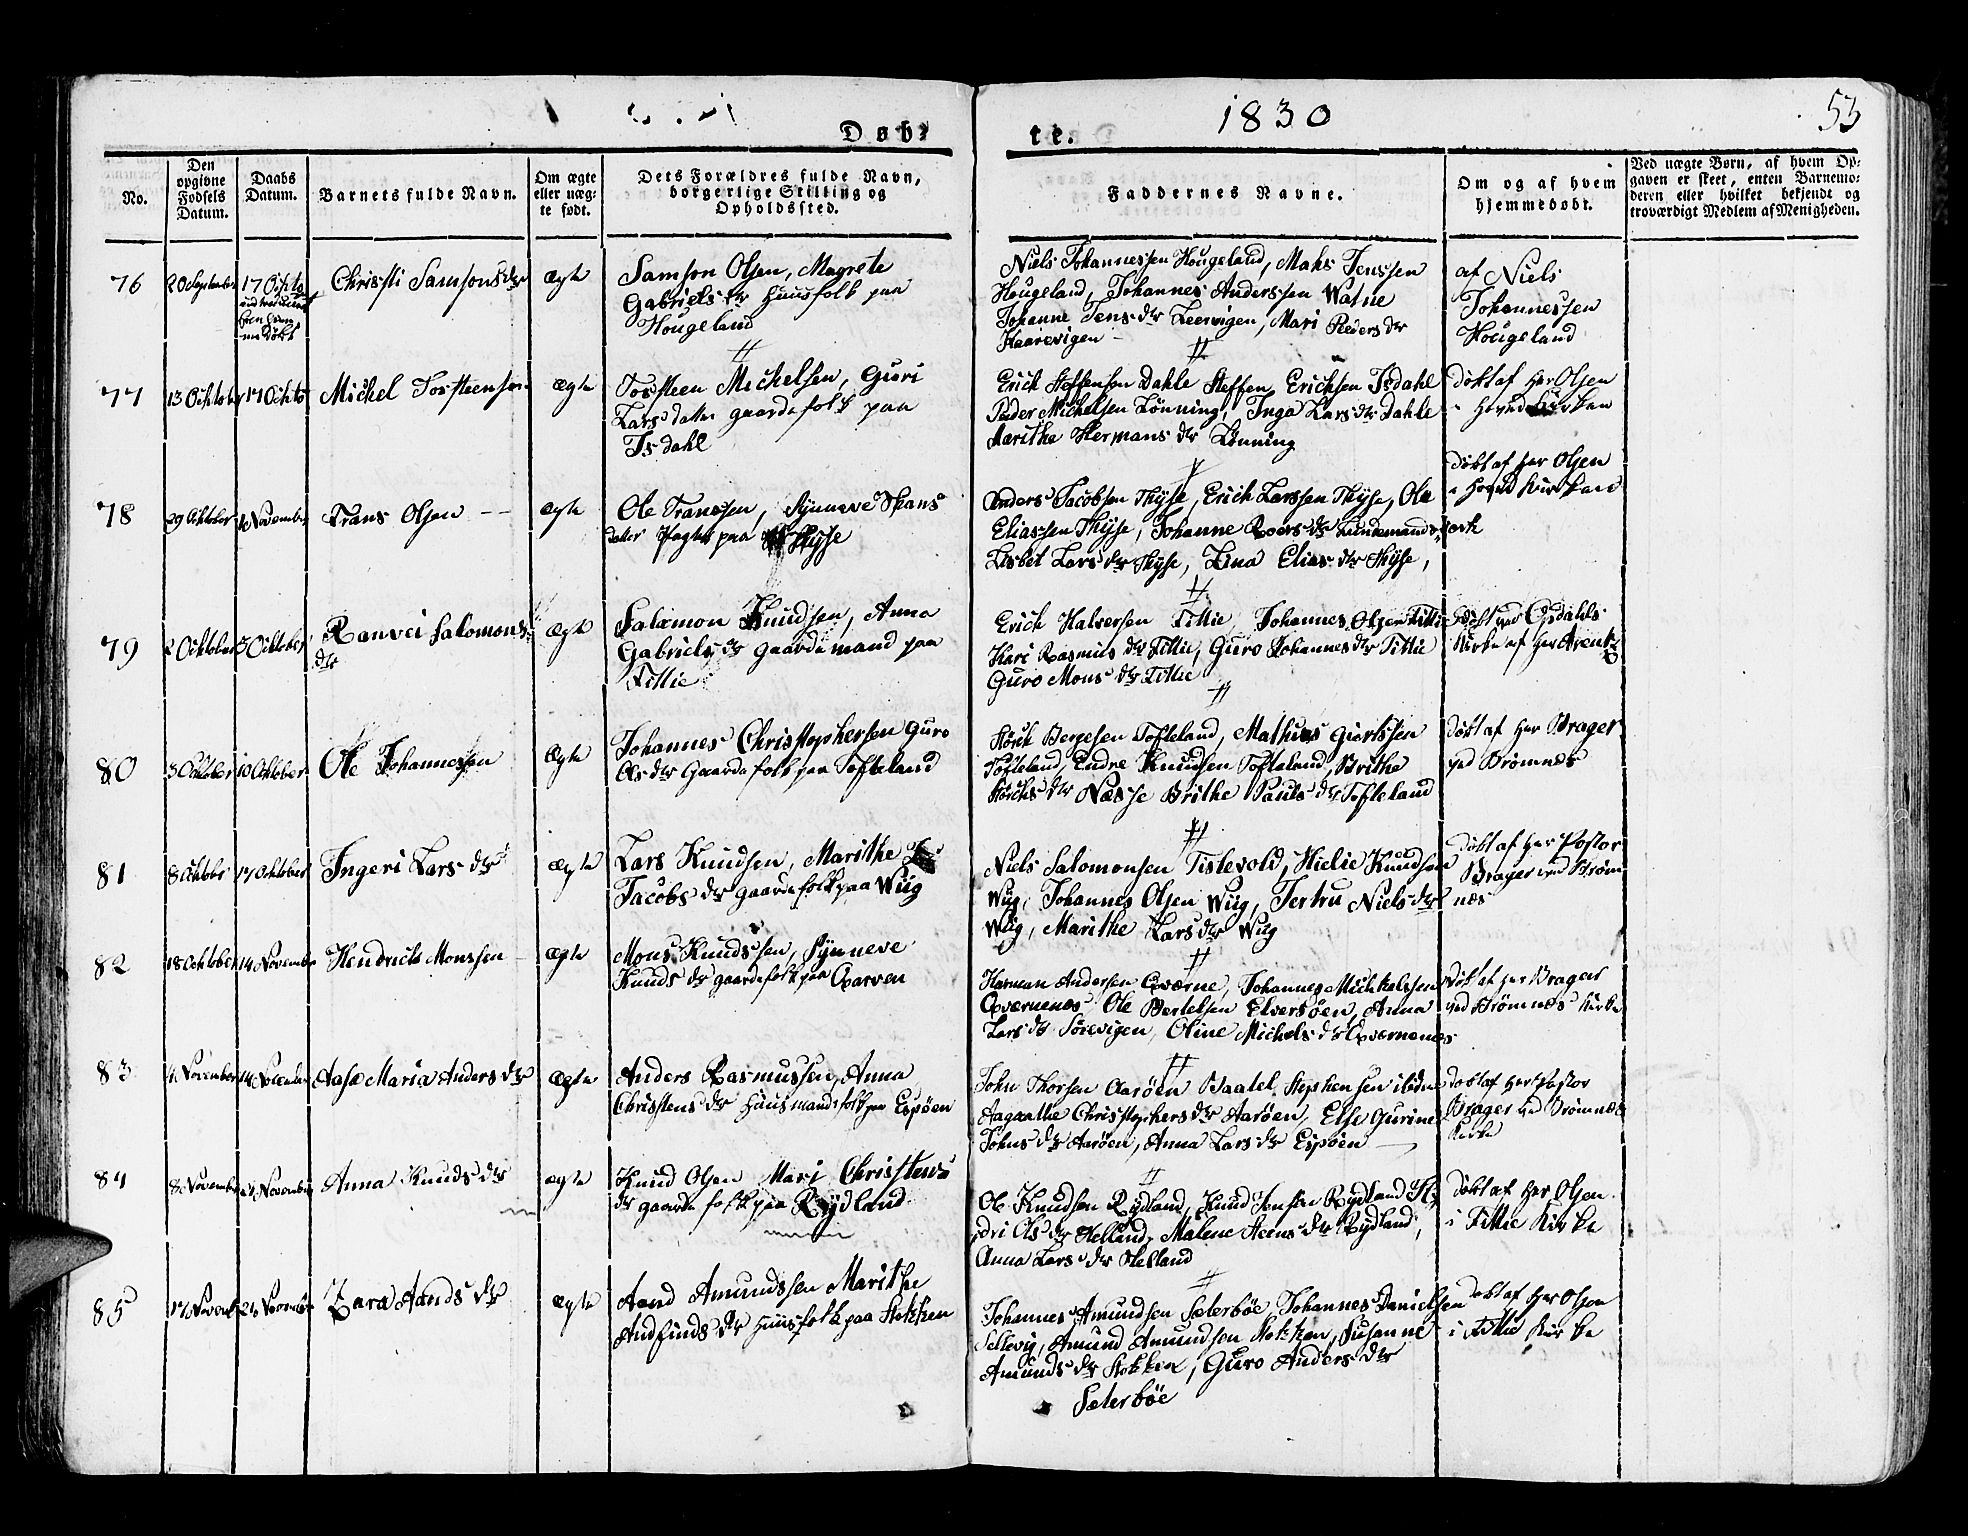 1830
53
Døb-
te.
No.
Den
opgivne
Fødsels
Datum.
Daabs
Datum.
Barnets fulde Navn.
Om ægte
eller uæg-
te født.
Dets Forældres fulde Navn,
borgerlige Stilling og
Opholdssted.
Faddernes Navne.
Om og af hvem
hjemmedøbt.
Ved uægte Børn, af hvem Op-
gaven er skeet, enten Barnemo-
deren eller hvilket bekjendt og
troværdigt Medlem af Menigheden.
76
20 September
17 Octo
Christi Samsons dr
ægte
Samson Olsen, Magrete
Gabriels dr Huusfolk paa
Hougeland
Niels Johannessen Hougeland, Mahs Jenssen
Hougeland, Johannes Anderssen Watne
Johanne Jens dr Leervigen, Mari Peders dr
Kaarevigen
af Niels
Johannessen
Hougeland
77
13 Octobr
17 Octo
Michel Tosteensen
ægte
Tosteen Michelsen, Guri
Lars datter gaardefolk paa
Isdahl
Erich Steffensen Dahle Steffen Erichsen Isdahl
Peder Michelsen Lønning, Inga Lars dr Dahle
Marithe Hermans dr Lønning
døbt af Her Olsen
i Hoved Kirken
78
29 Oktober
November
Frans Olsen
ægte
Ole Franssen, Synneve Spans
datter paa Thyse
Anders Jacobsen Thyse, Erich Larssen Thyse, Ole
Eliassen Thyse, Johanne Roers dr Lundemandsverk
Lisbet Lars dr Thyse, Lina Elias dr Thyse,
døbt af Her Olsen
i Hoved Kirken
79
2 Oktober
3 Oktober
Ranvei Salomons
dr
ægte
Salomon Knudsen, Anna
Gabriels dr gaardemand paa
Fittie
Erich Halversen Fittie, Johannes Olsen Fittie
Kari Rasmus dr Fittie, Guro Johannes dr Fittie
Guro Mons dr Fittie
døbt ved Opdahls
Kirke af Her Arentz
80
3 Oktober
10 Oktober
Ole Johannessen
ægte
Johannes Christophersen Guro
Ols dr Gaardefolk paa Tofteland
Størck Bergesen Tofteland, Mathias Giertssen
Tofteland Endre Knudsen Tofteland, Brithe
Størchs dr Næsse Brithe Pauls dr Tofteland
døbt af Her Brager
ved Brømnæs
81
8 Oktobr
17 Oktober
Ingeri Lars dr
ægte
Lars Knudsen, Marithe
Jacobs dr gaardefolk paa Wiig
Niels Salomonsen Tislevold, Hielie Knudsen
Wiig, Johannes Olsen Wiig, Jertru Niels dr
Wiig, Marithe Lars dr Wiig
døbt af Her Pastor
Brager ved Brøm
næs
82
18 Oktober
14 November
Hendrich Monssen
ægte
Mons Knudssen, Synneve
Knuds dr gaardefolk paa Qvarven
Herman Andersen Qværne, Johannes Michkelssen
Qværnenæs Ole Bertelsen Elversøen, Anna
Lars dr Sørevigen, Oline Michels dr Qværnenæs
døbt af Her Brager
ved Brømnæs Kirke
83
November
14 November
Aase Maria Anders dr
ægte
Anders Rasmussen, Anna
Christens dr Huusmandsfolk paa Espøen
John Thorsen Aarøen Baatel Stephensen
Aagaathe Christophers dr Aarøen, Else Gurine
Johns dr Aarøen, Anna Lars dr Espøen
døbt af Her Pastor
Brager ved Brømnæs
Kirke
84
8 November
21 November
Anna Knuds dr
ægte
Knud Olsen Mari Christens
dr gaardefolk paa Rydland
Ole Knudsen Rydland, Knud Jonsen Rydland
Ols dr Helland, Malene Steens dr Rydland,
Anna Lars dr Helland
døbt af Her Olsen
i Fittie Kirke
85
17 Novemb
21 November
Zara Aands dr
ægte
Aand Amundssen Marithe
Andfinds dr Huusfolk paa Stokken
Johannes Amundsen Sæterbøe, Johannes Danielsen
Sellevig, Amund Amundsen Stokken, Susanne
Amunds dr Stokken, Guro Anders dr
Sæterbøe
døbt af Her Olsen
i Fittie Kirke